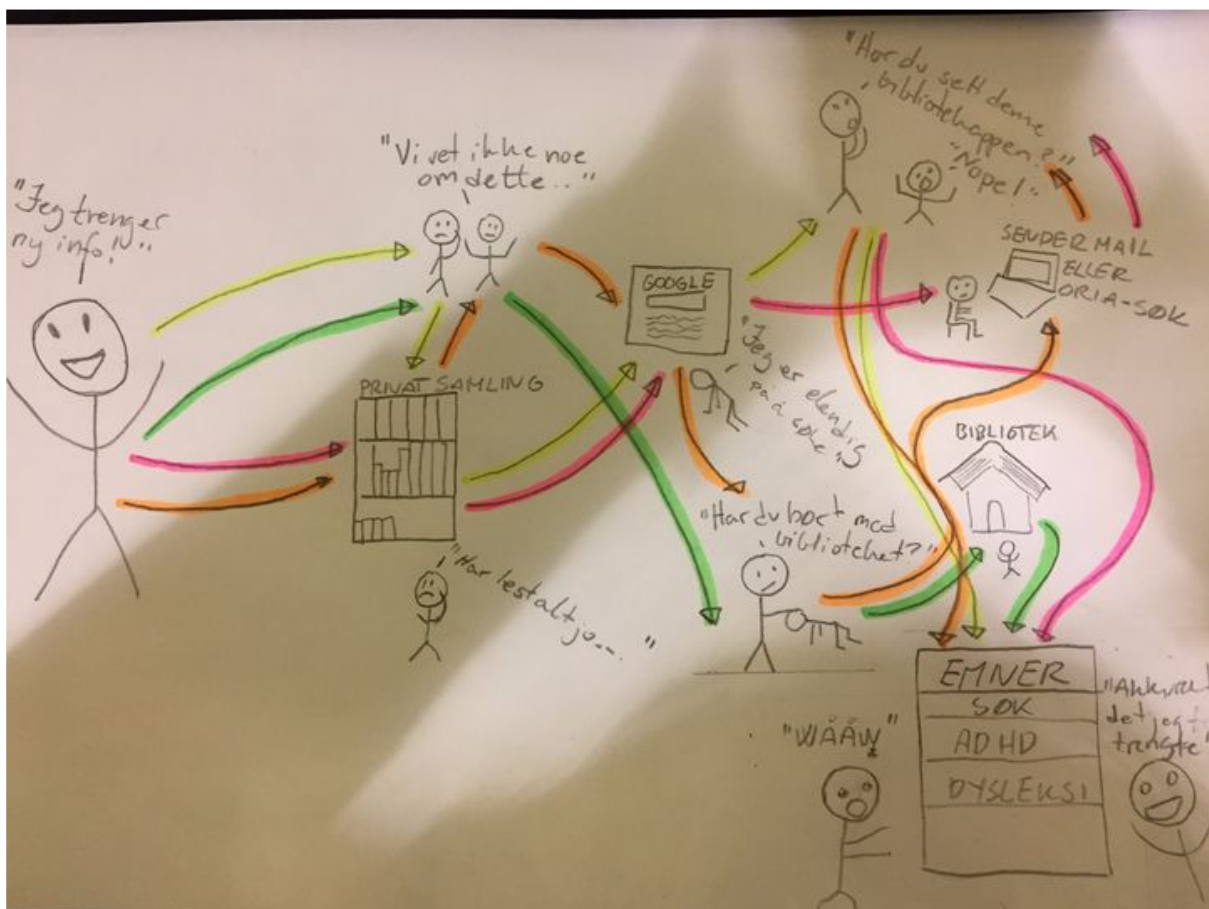 "Jeg trenger
ny info!"
"Vi vet ikke noe
om dette.."
PRIVAT SAMLING
"Har lest alt jo...."
GOOGLE
"Jeg er elendig
på å søke"
"Har du sett denne
bibliotekappen?"
"Nope!"
SENDER MAIL
ELLER
ORIA-SØK
BIBLIOTEK
"Har du hørt med
biblioteket?"
EMNER
SØK
ADHD
DYSLEKSI
"WÅÅW"
det jeg
trengte"